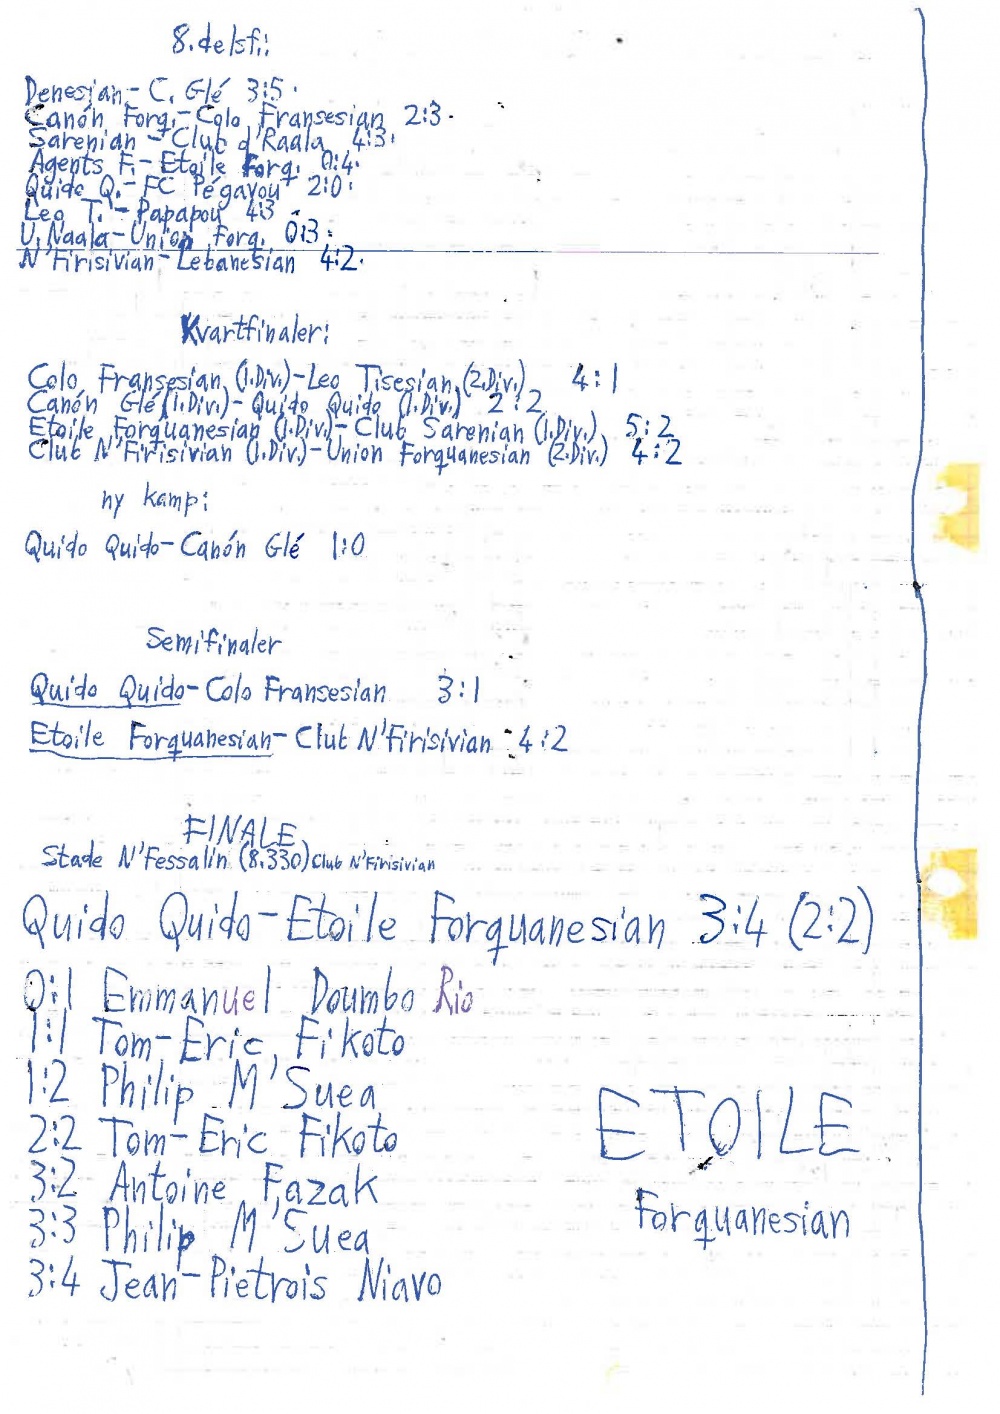 8.delsfi:
Denesian - C. Glé 3:5.
Canón Forq. - Colo Fransesian 2:3.
Sarenian - Club d'Raala 4:3.
Agents F. - Etoile Forq. 0:4.
Quido Q. - FC Pégavou 2:0.
Leo T. - Papapou 4:3
U. Naala - Union Forq. 0:3.
N'Firisivian - Lebanesian 4:2.
Kvartfinaler:
Colo Fransesian (1.Div.) - Leo Tisesian (2.Div.) 4:1
Canón Glé (1.Div.) - Quido Quido (1.Div.) 2:2
Etoile Forquanesian (1.Div.) - Club Sarenian (1.Div.) 5:2
Club N'Firisivian (1.Div.) - Union Forquanesian (2.Div.) 4:2
ny kamp:
Quido Quido - Canón Glé 1:0
Semifinaler
Quido Quido - Colo Fransesian 3:1
Etoile Forquanesian - Club N'Firisivian 4:2
FINALE
Stade N'Fessalin (8.330) Club N'Firisivian
Quido Quido - Etoile Forquanesian 3:4 (2:2)
0:1 Emmanuel Doumbo Rio
1:1 Tom-Eric Fikoto
1:2 Philip M'Suea
2:2 Tom-Eric Fikoto
3:2 Antoine Fazak
3:3 Philip M'Suea
3:4 Jean-Pietrois Niavo
ETOILE
Forquanesian